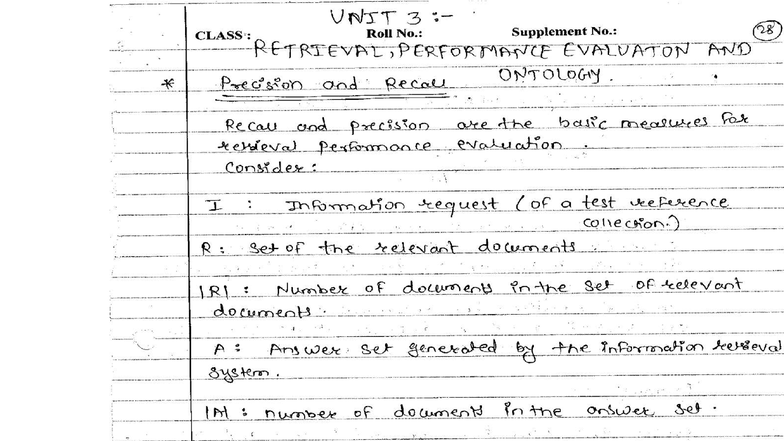 UNIT 3 :-
CLASS : Roll No.: Supplement No.: 28
RETRIEVAL, PERFORMANCE EVALUATON AND
ONTOLOGY.
* Precision and Recall
Recall and precision are the basic measures for
retrieval performance evaluation.
Consider :
I : Information request (of a test reference
collection.)
R : Set of the relevant documents.
|R| : Number of documents in the set of relevant
documents.
A : Answer set generated by the information retrieval
system.
|A| : number of documents in the answer set.